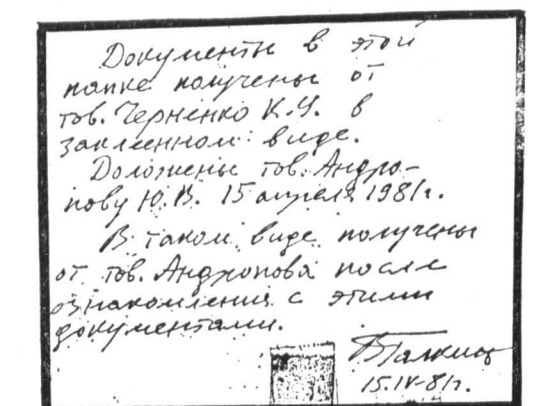 Документы в этой
папке получены от
тов. Черненко К.У. в
заклеенном виде.
Доложены тов. Андро-
пову Ю.В. 15 апреля 1981г.
В таком виде получены
от тов. Андропова после
ознакомления с этими
документами.
В Галкин
15.IV-81г.